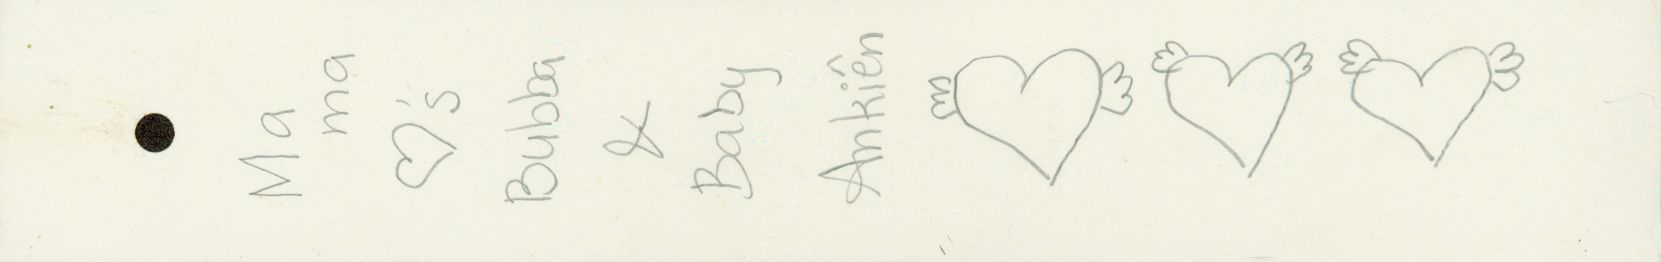 Ma
ma
♡'s
Bubba
&
Baby
Ankiên